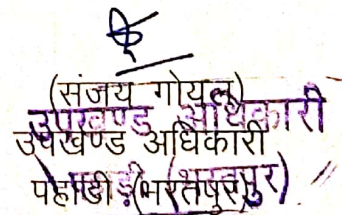 (संजय गोयल)
उपखण्ड अधिकारी
उपखण्ड अधिकारी
पहाडी (भरतपुर)